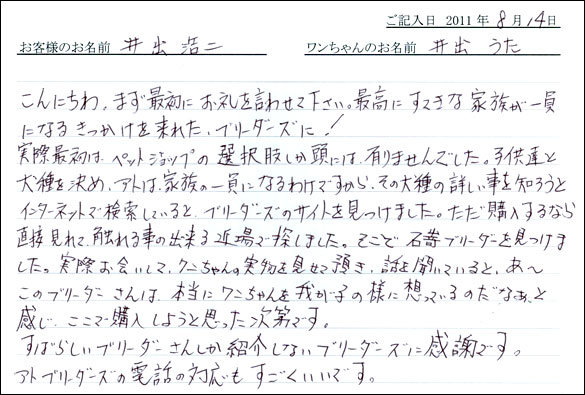 ご記入日 2011年 8月14日
お客様のお名前 井出浩二 ワンちゃんのお名前 井出 うた
こんにちわ、まず最初にお礼を言わせて下さい。最高にすてきな家族が一員
になるきっかけを来れた、ブリーダーズに！
実際最初は、ペットショップの選択肢しか頭には、有りませんでした。子供達と
犬種を決め、アトは、家族の一員になるわけですから、その犬種の詳しい事を知ろうと
インターネットで検索していると、ブリーダーズのサイトを見つけました。ただ購入するなら
直接見れて、触れる事の出来る近場で探しました。そこで 石嵜ブリーダーを見つけま
した。実際お会いして、ワンちゃんの実物を見せて頂き、話を聞いていると、あ〜
このブリーダーさんは、本当にワンちゃんを我が子の様に想っているのだなぁ、と
感じ、ここで購入しようと思った次第です。
すばらしいブリーダーさんしか紹介しないブリーダーズに感謝です。
アトブリーダーズの電話の対応もすごくいいです。